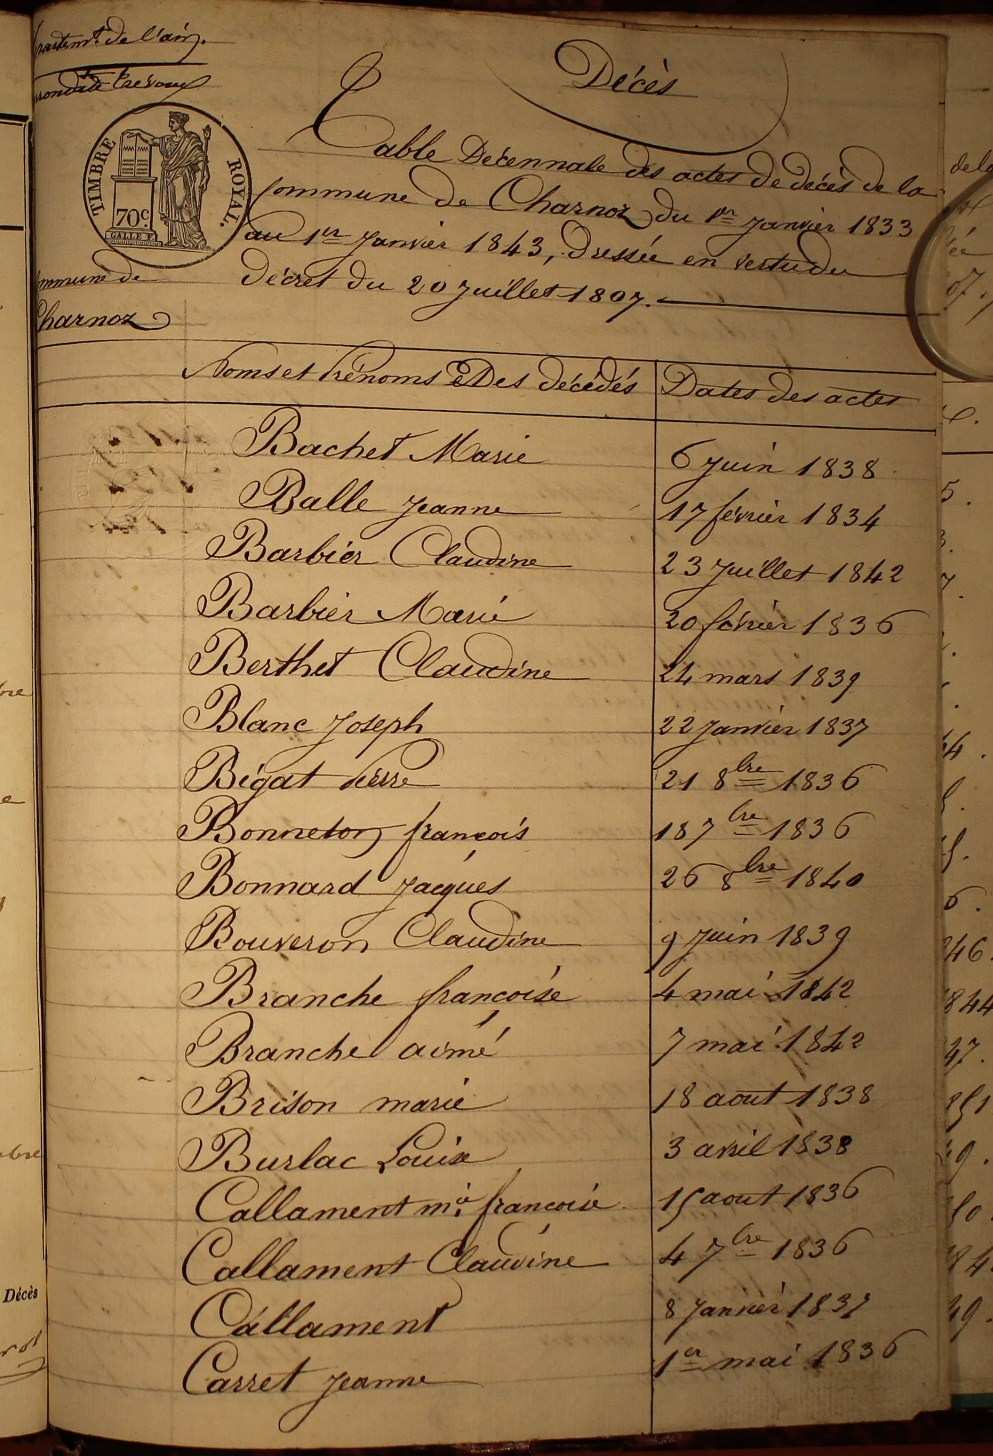 de l'ain.
Décès
TIMBRE ROYAL.
70c.
Table Décennale des actes de décès de la
Commune de Charnoz du 1er Janvier 1833
au 1er Janvier 1843, Dressée en vertu du
Décret du 20 Juillet 1807.
Charnoz
Noms et Prénoms Des décédés Dates des actes
Bachet Marie 6 Juin 1838
Balle Jeanne 17 février 1834
Barbier Claudine 23 Juillet 1842
Barbier Marie 20 février 1836
Berthet Claudine 24 mars 1839
Blanc Joseph 22 Janvier 1837
Bégat Pierre 21 8bre 1836
Bonneton françois 18 7bre 1836
Bonnard Jacques 26 8bre 1840
Bouveron Claudine 9 Juin 1839
Branche françoise 4 mai 1842
Branche aimé 7 mai 1842
Brison marie 18 aout 1838
Burlac Louise 3 avril 1838
Callament mie françoise 15 aout 1836
Callament Claudine 4 7bre 1836
Callament 8 Janvier 1837
Carret Jeanne 1er mai 1836
Décès